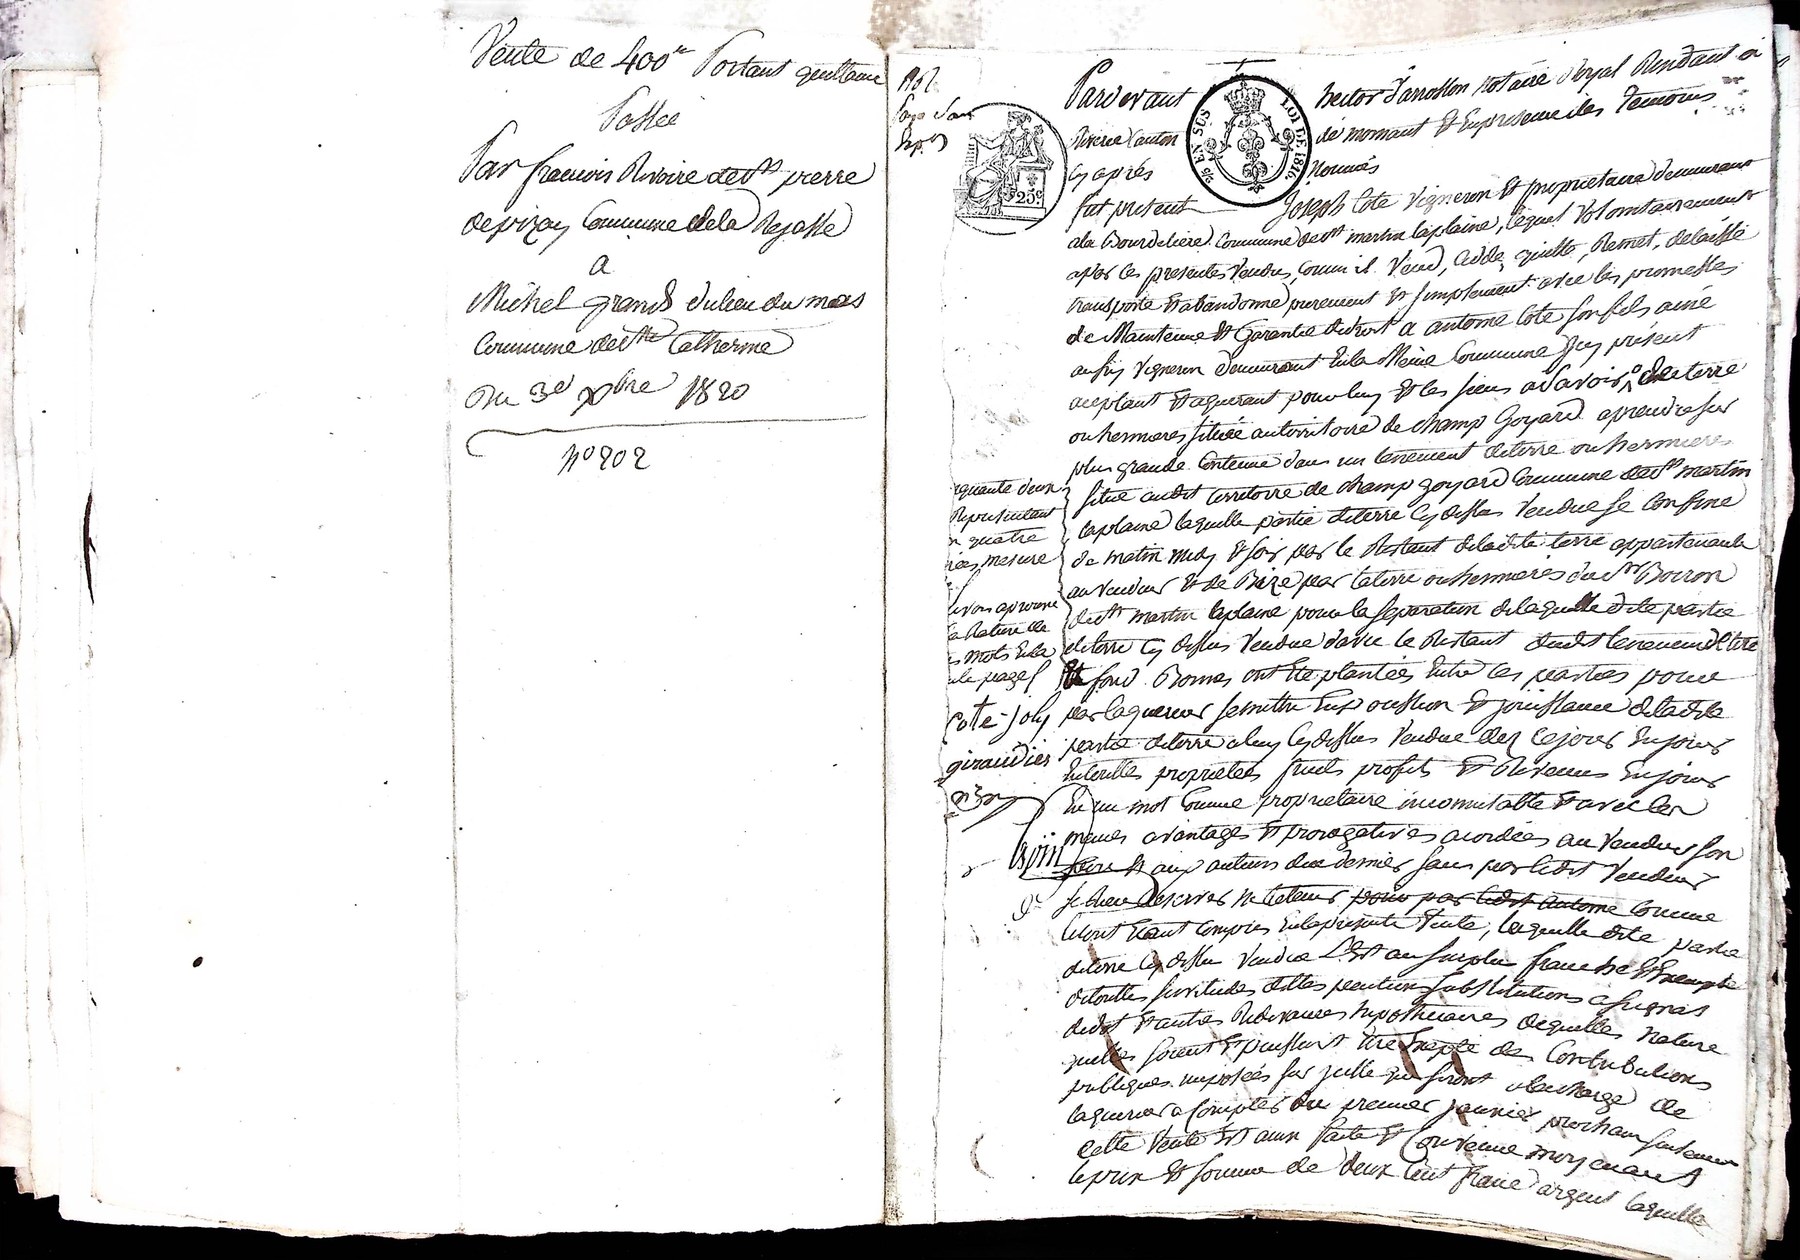 Vente de 400fr Portant quittance
Passée
Par francois Rivoire de St pierre
de pizay Commune de la Rajasse
a
Michel grand du lieu du mas
Commune de Ste Catherine
Du 3e xbre 1820
No 202
No 2
Pardevant hector Danosson Notaire Royal Residant à
Riverie Canton de mornant Et En presence des Temoins
Cy après Nommés
EN SUS
LOI DE 1816
25c
fut present Joseph Cote Vigneron Et proprietaire demeurant
a la Bourdeliere Commune de St martin laplaine, lequel Volontairement
a par les presentes Vendu, Comme il Vend, Cedde, quitte, Remet, delaisse
transporte Et abandonne purement Et Simplement avec les promesses
de Maintenue Et Garantie de droit a antoine Cote Son fils ainé
aussy Vigneron demeurant En la Même Commune Icy présent
aceptant Et aquerant pour luy Et les Siens a Savoir de terre
ou hermieres Située au territoire de champ Goyard a prendre Sur
plus grande Contenue dans un tenement de terre ou hermieres
Situé audit territoire de champ goyard Commune de St martin
laplaine laquelle partie de terre Cy dessus Vendue Se Confine
de matin midy Et Soir par le Restant de ladite terre appartenante
au Vendeur Et de Bize par la terre ou hermieres du Sr Boiron
de St martin laplaine pour la Separation de laquelle dite partie
de terre Cy dessus Vendue d'avec le Restant dudit tenement de terre
Et fond Bornes ont Ete plantées Entre les parties pour
par laquereur Se mettre En possession Et jouissance de ladite
partie de terre a luy Cy dessus Vendue dez Ce jour En jouir
En touttes proprietées fruits profits Et Revenus En jouir
En un mot Comme proprietaire incomutable Et avec les
mêmes avantages Et prerogatives acordées au Vendeur Son
pere Et aux auteurs de ce dernier Sans par ledit Vendeur
Se Rien Reserver Ni Retenir pour par ledit antoine Comme
le tout Etant Compris En la presente Vente, laquelle dite partie
de terre Cy dessus Vendue Est au Surplus franche Et Exempte
de touttes Servitudes dettes pentions Substitutions assignas
de dot Et autres Redevances hypothecaires de quelles Nature
quelles Soient Et puissent Etre Excepté des Contributions
publiques imposées Sur Icelle qui Seront a la charge de
laquereur a Compter du premier janvier prochain Seulement
Cette Vente Est ainsi faite Et Convenue moyenant
le prix Et Somme de deux Cent francs argent laquelle
quante deux
Representant
quatre
mesure
approuvé
la Rature de
mots En la
page
Cote Joly
giraudier